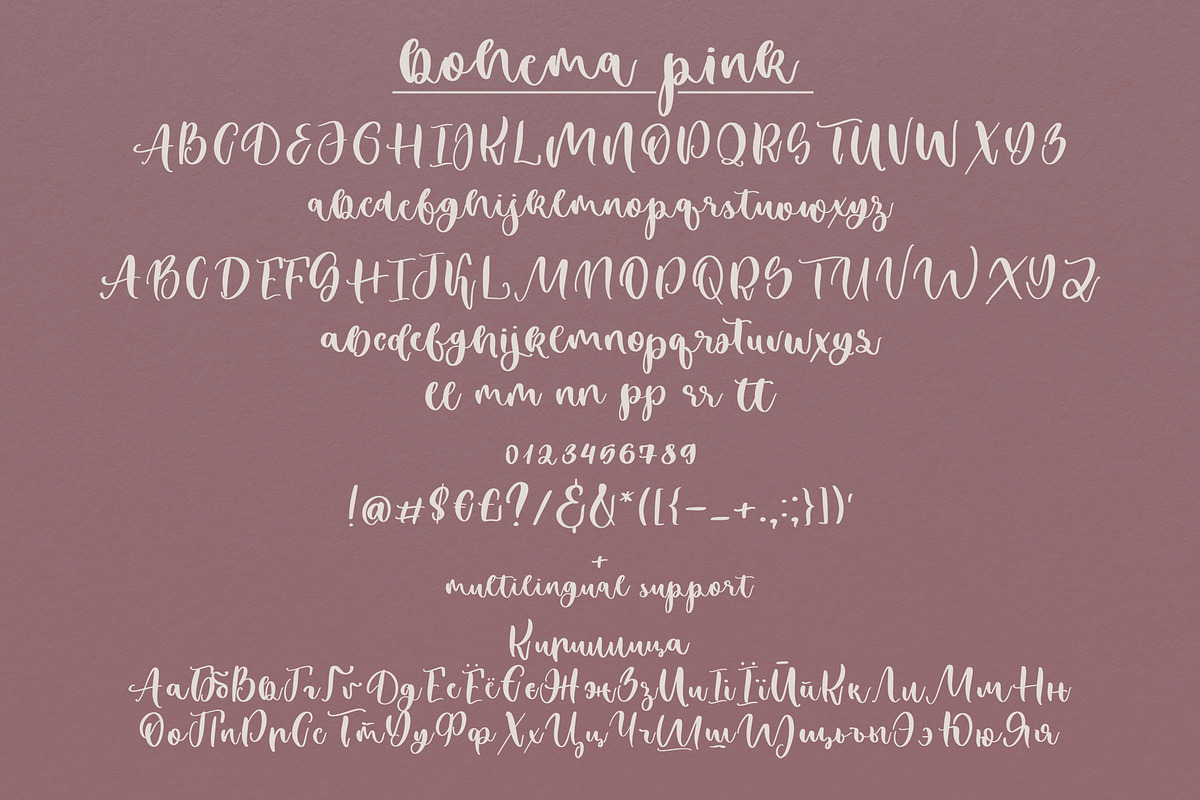 bohema pink
ABCDEFGHIJKLMNOPQRSTUVWXYZ
abcdefghijklmnopqrstuvwxyz
ABCDEFGHIJKLMNOPQRSTUVWXYZ
abcdefghijklmnopqrstuvwxyz
ee mm nn pp rr tt
0123456789
!@#$€£?/&&*([{-_+.,:;}])'
+
multilingual support
Кириллица
АаБбВвГгҐґДдЕеЁёЄєЖжЗзИиІіЇїЙйКкЛлМмНн
ОоПпРрСсТтУуФфХхЦцЧчШшЩщьъыЭэЮюЯя